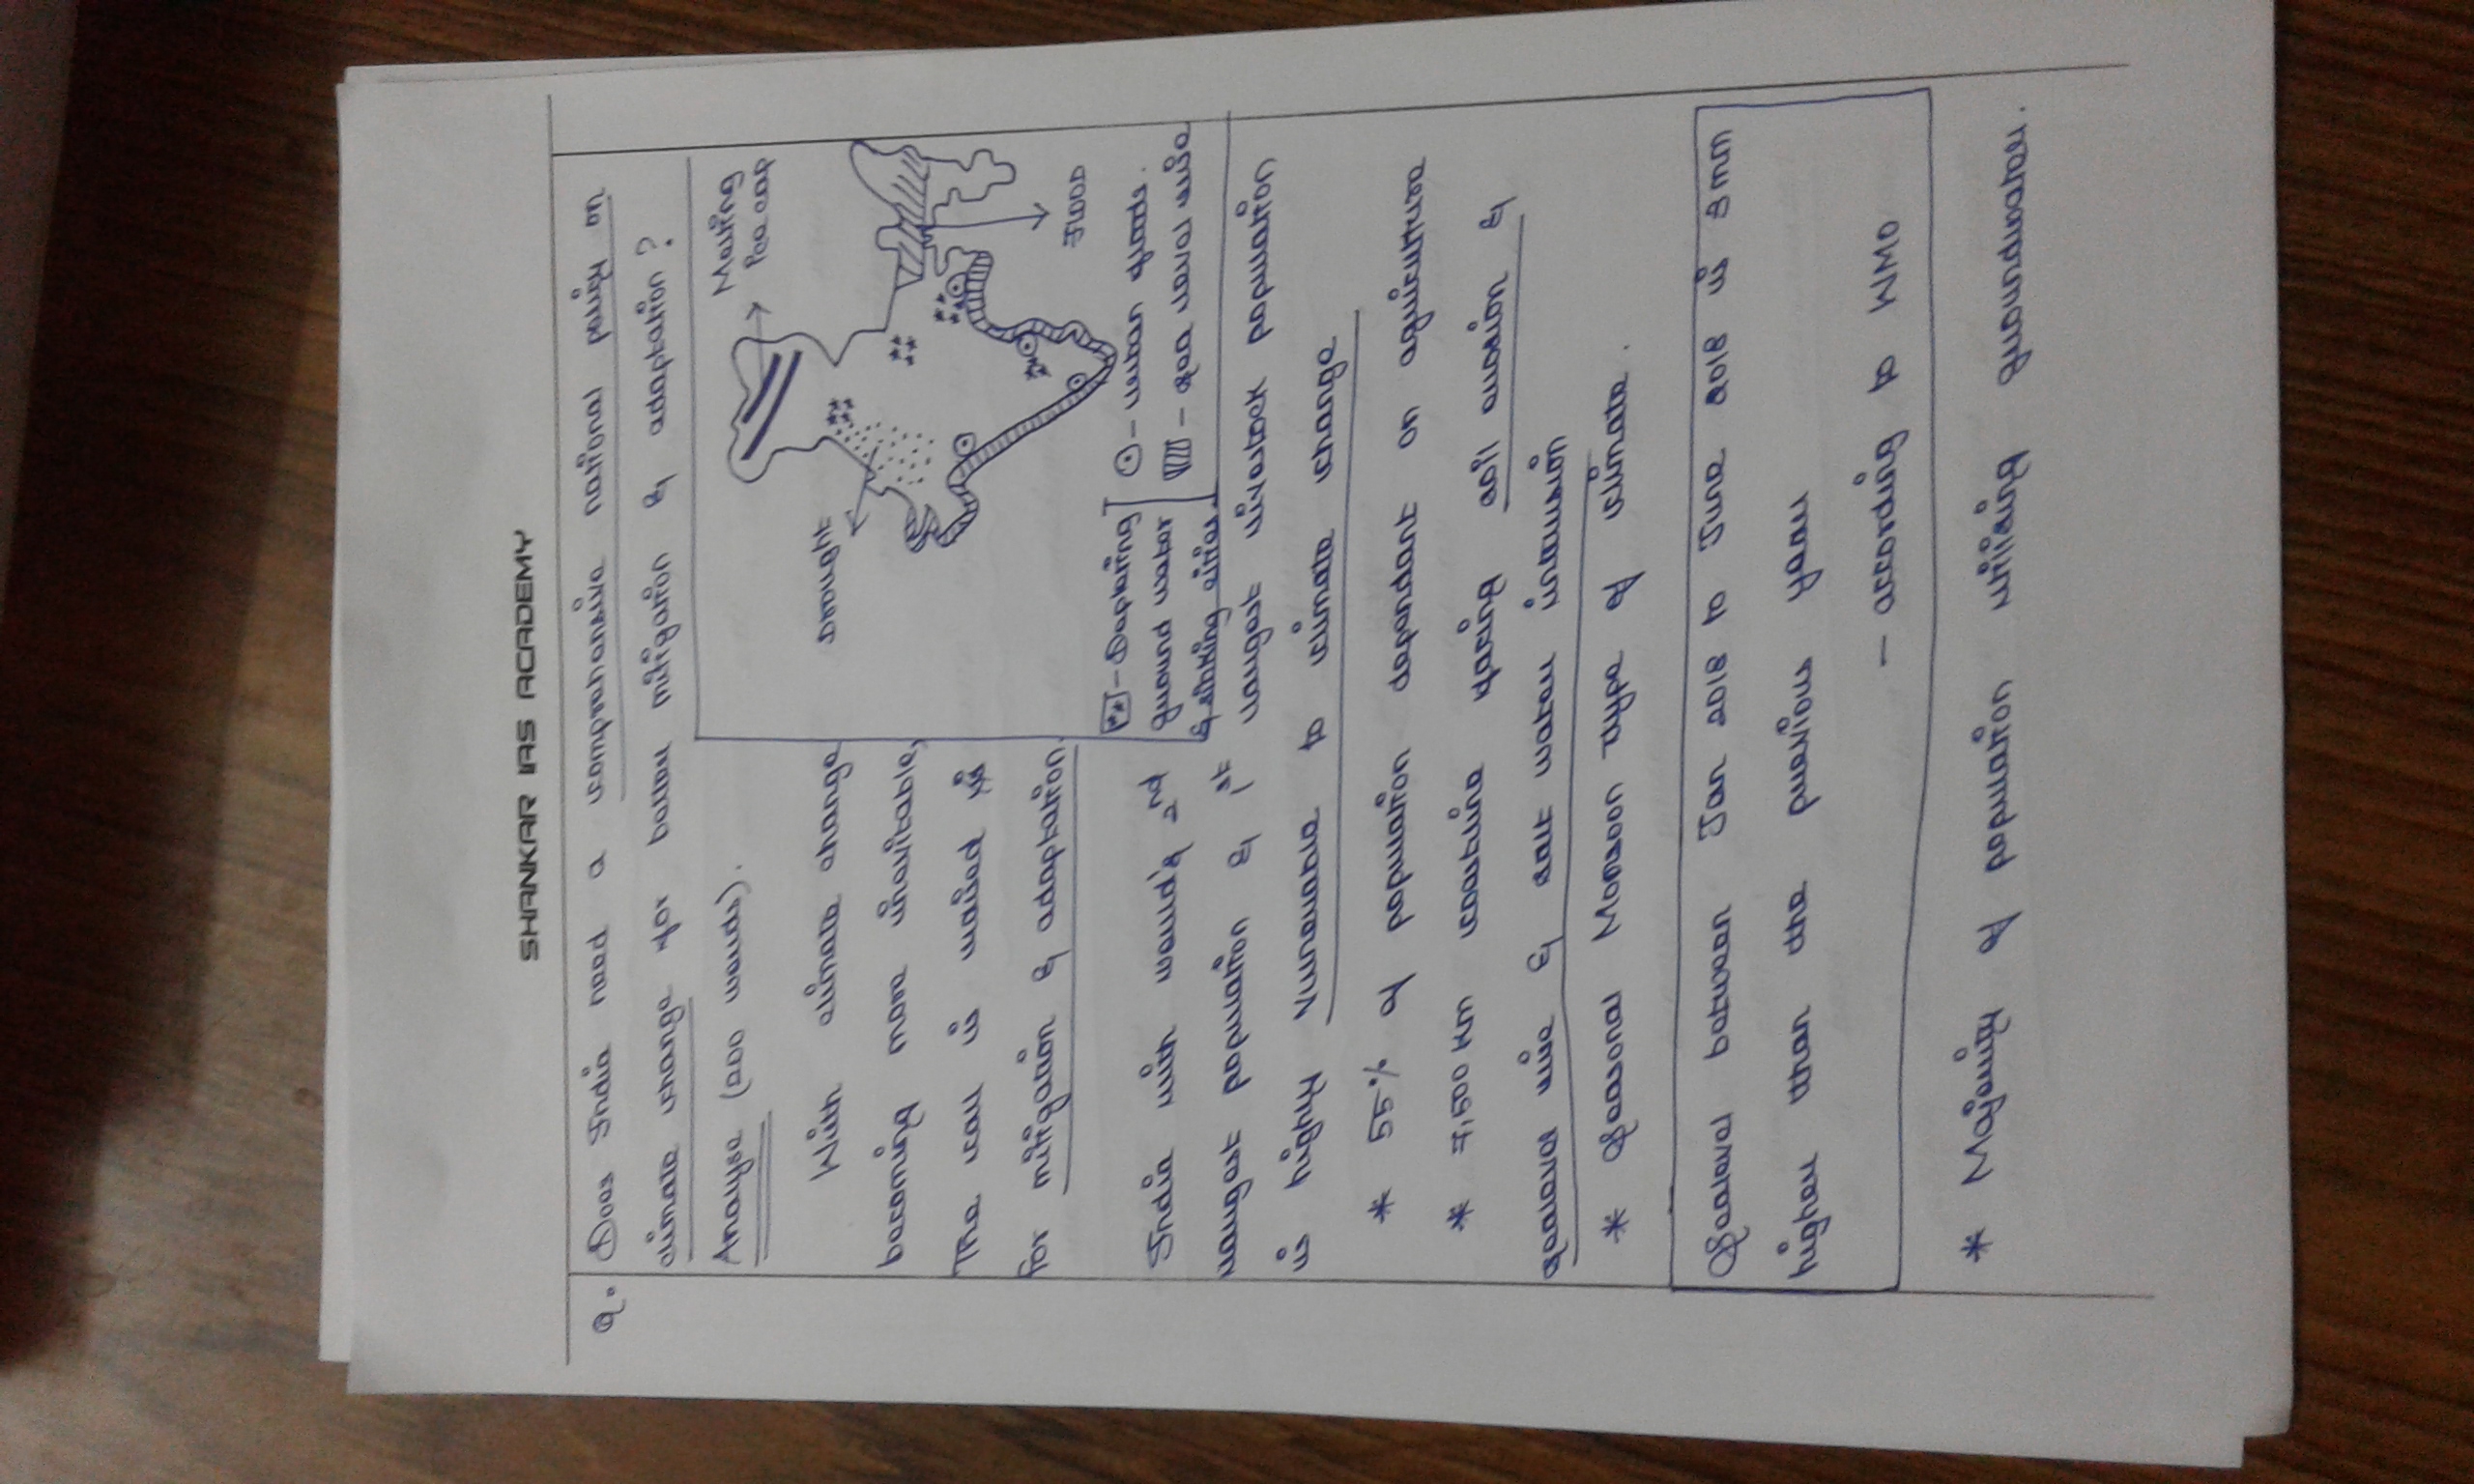 SHANKAR IAS ACADEMY
Q. Does India need a comprehensive national policy on
climate change for better mitigation & adaptation ?
Analyse (200 words).
With climate change
becoming more inevitable,
The call is raised
for mitigation & adaptation.
Melting
Ice cap
Drought
Flood
- Depleting
ground water
& sinking cities
- urban floods.
- sea level rise
India with world's 2nd
largest population & 1st largest livestock population
is highly vulnerable to climate change
* 55% of population dependent on agriculture
* 7,500 km coastline facing soil erosion &
sealevel rise & salt water intrusion
* Seasonal Monsoon type of climate.
Sealevel between Jan 2018 to June 2018 is 3mm
higher than the previous year
- according to WMO
* Majority of population utilising groundwater.